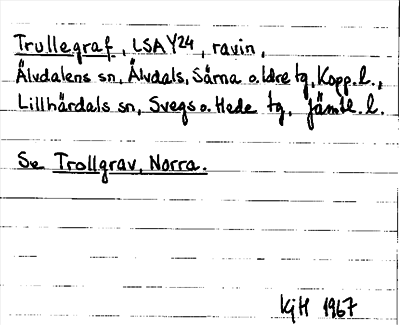 Trullegraf, LSA Y24, ravin,
Älvdalens sn, Älvdals, Särna o. Idre tg, Kopp. l.,
Lillhärdals sn, Svegs o. Hede tg, Jämtl. l.
Se Trollgrav, Norra.
KjH 1967